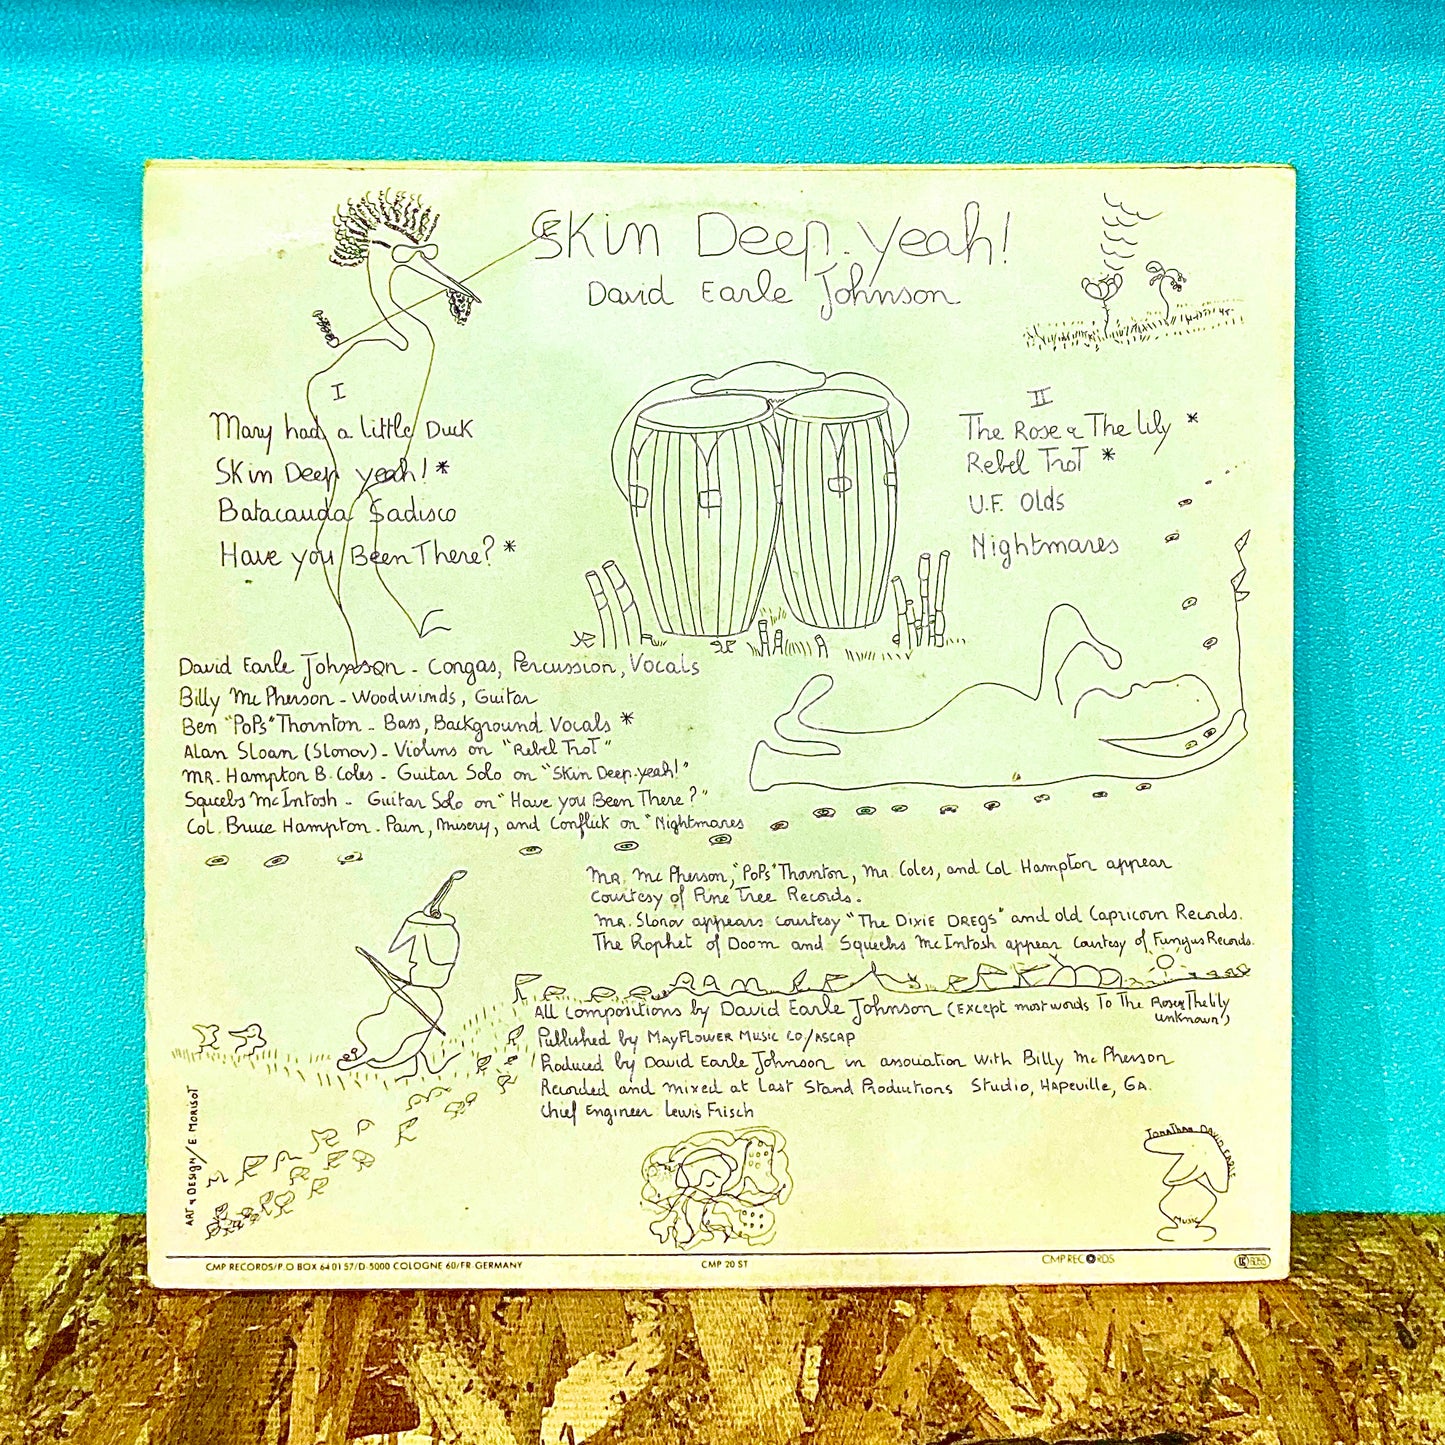 Skin Deep. yeah!
David Earle Johnson
I
Mary had a little Duck
Skin Deep yeah! *
Batacauda Sadisco
Have you Been There? *
II
The Rose & The lily *
Rebel Trot *
U.F. Olds
Nightmares
David Earle Johnson - Congas, Percussion, Vocals
Billy Mc Pherson - Woodwinds, Guitar
Ben "PoPs" Thornton - Bass, Background Vocals *
Alan Sloan (Slonov) - Violins on "Rebel Trot"
MR. Hampton B. Coles - Guitar Solo on "Skin Deep.yeah!"
Squeebs McIntosh - Guitar Solo on "Have you Been There?"
Col. Bruce Hampton - Pain, Misery, and Conflick on "Nightmares
MR. Mc Pherson, "PoPs" Thornton, Mr. Coles, and Col. Hampton appear
courtesy of Pine Tree Records.
MR. Slonov appears courtesy "The Dixie Dregs" and old Capricorn Records.
The Prophet of Doom and Squeebs McIntosh appear courtesy of Fungus Records.
All compositions by David Earle Johnson (Except most words To The Rose & The lily
unknown")
Published by MayFlower Music Co/ASCAP
Produced by David Earle Johnson in association with Billy Mc Pherson
Recorded and mixed at Last Stand Productions Studio, Hapeville, GA.
Chief Engineer Lewis Frisch
ART & DESIGN/E MORISOT
JONATHAN DAVID EARLE
MUSIC
CMP RECORDS/P.O BOX 64 01 57/D-5000 COLOGNE 60/FR.GERMANY
CMP 20 ST
CMP RECORDS